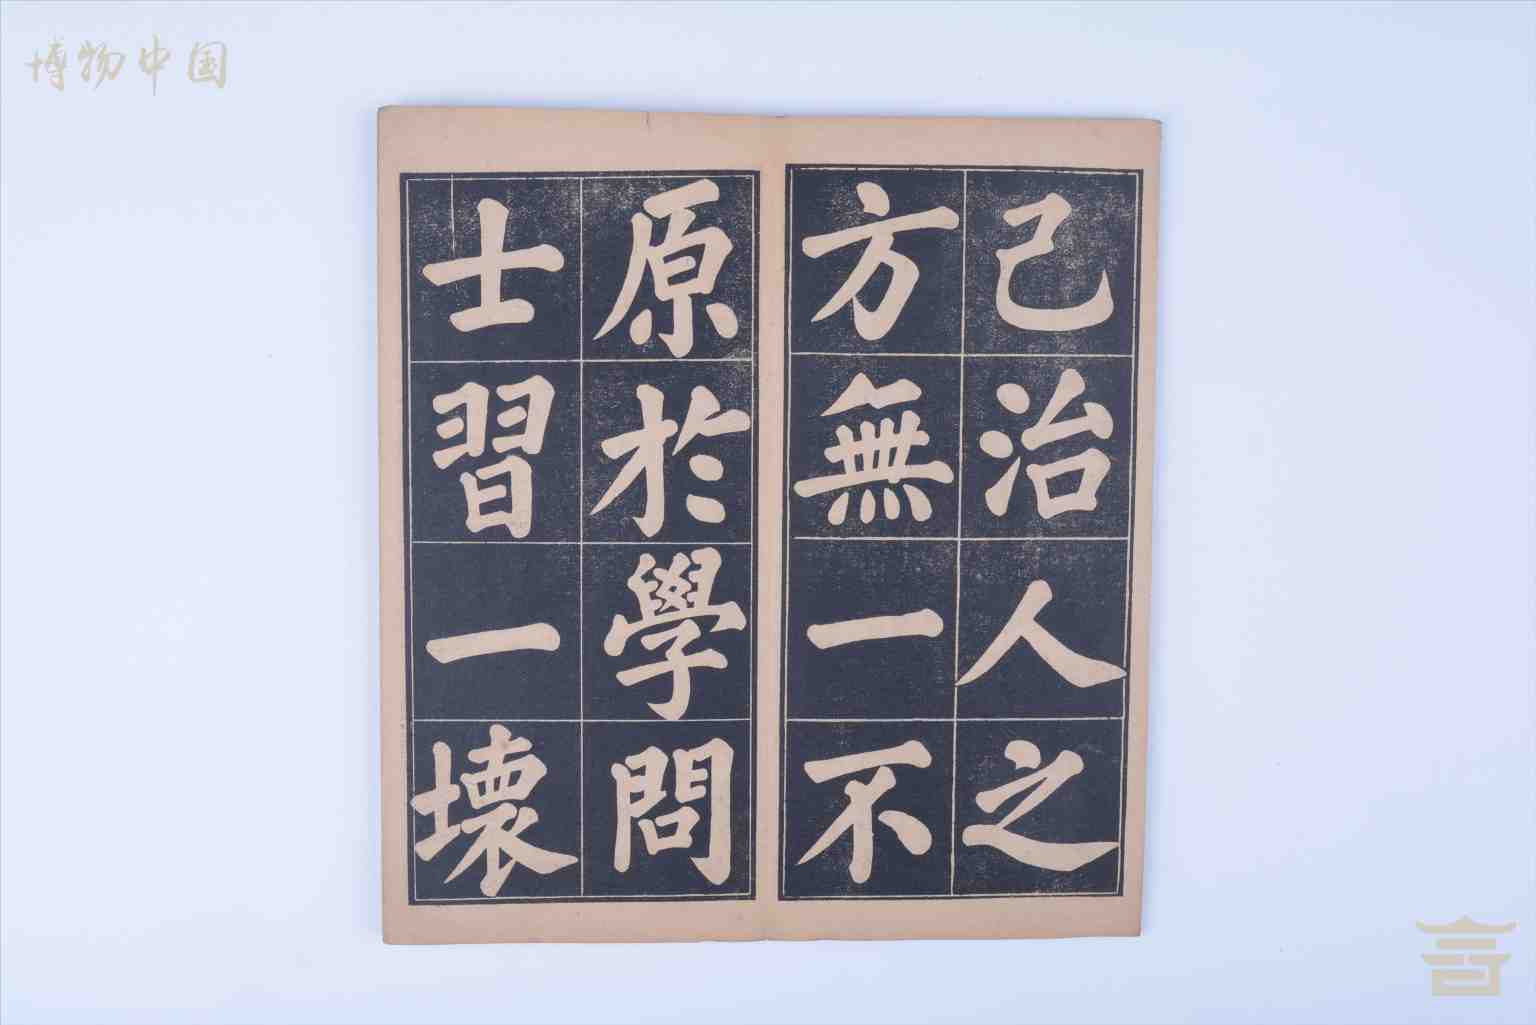 博物中国
己治人之
方無一不
原於學問
士習一壞